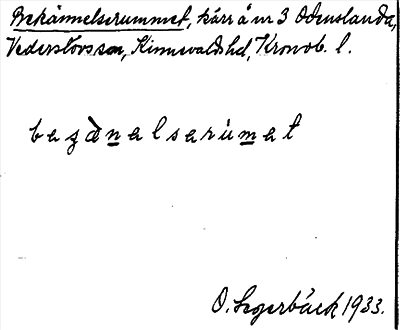 Bekännelserummet, kärr å nr 3 Odenslanda,
Vederslövs sn, Kinnevalds hd, Kronob. l.
beʒänelserùmet
O. Segerbäck 1933.